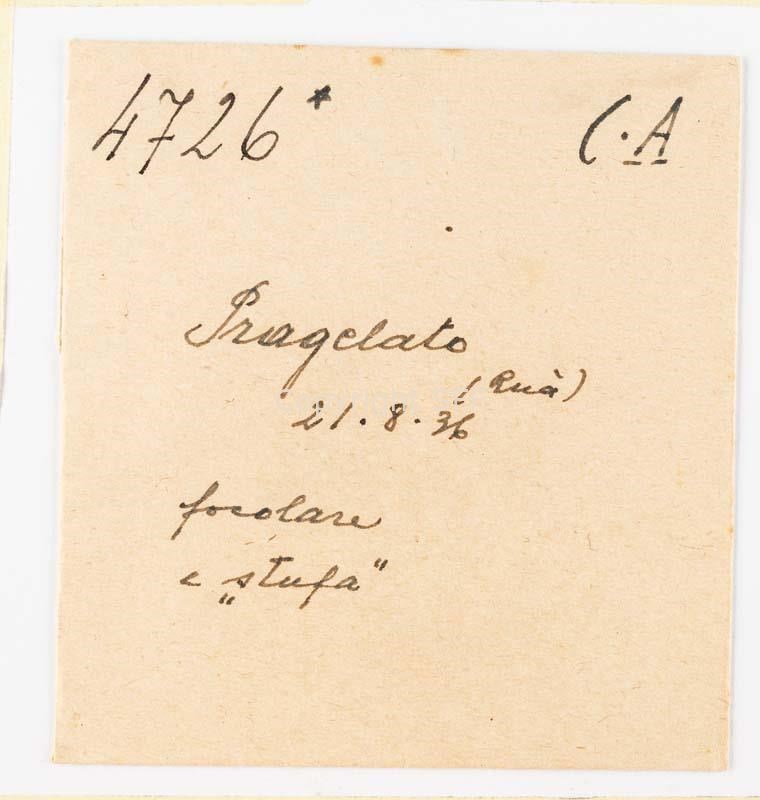 4726* C.A
Pragelato
(Ruà)
21.8.36
focolare
e „stufa"